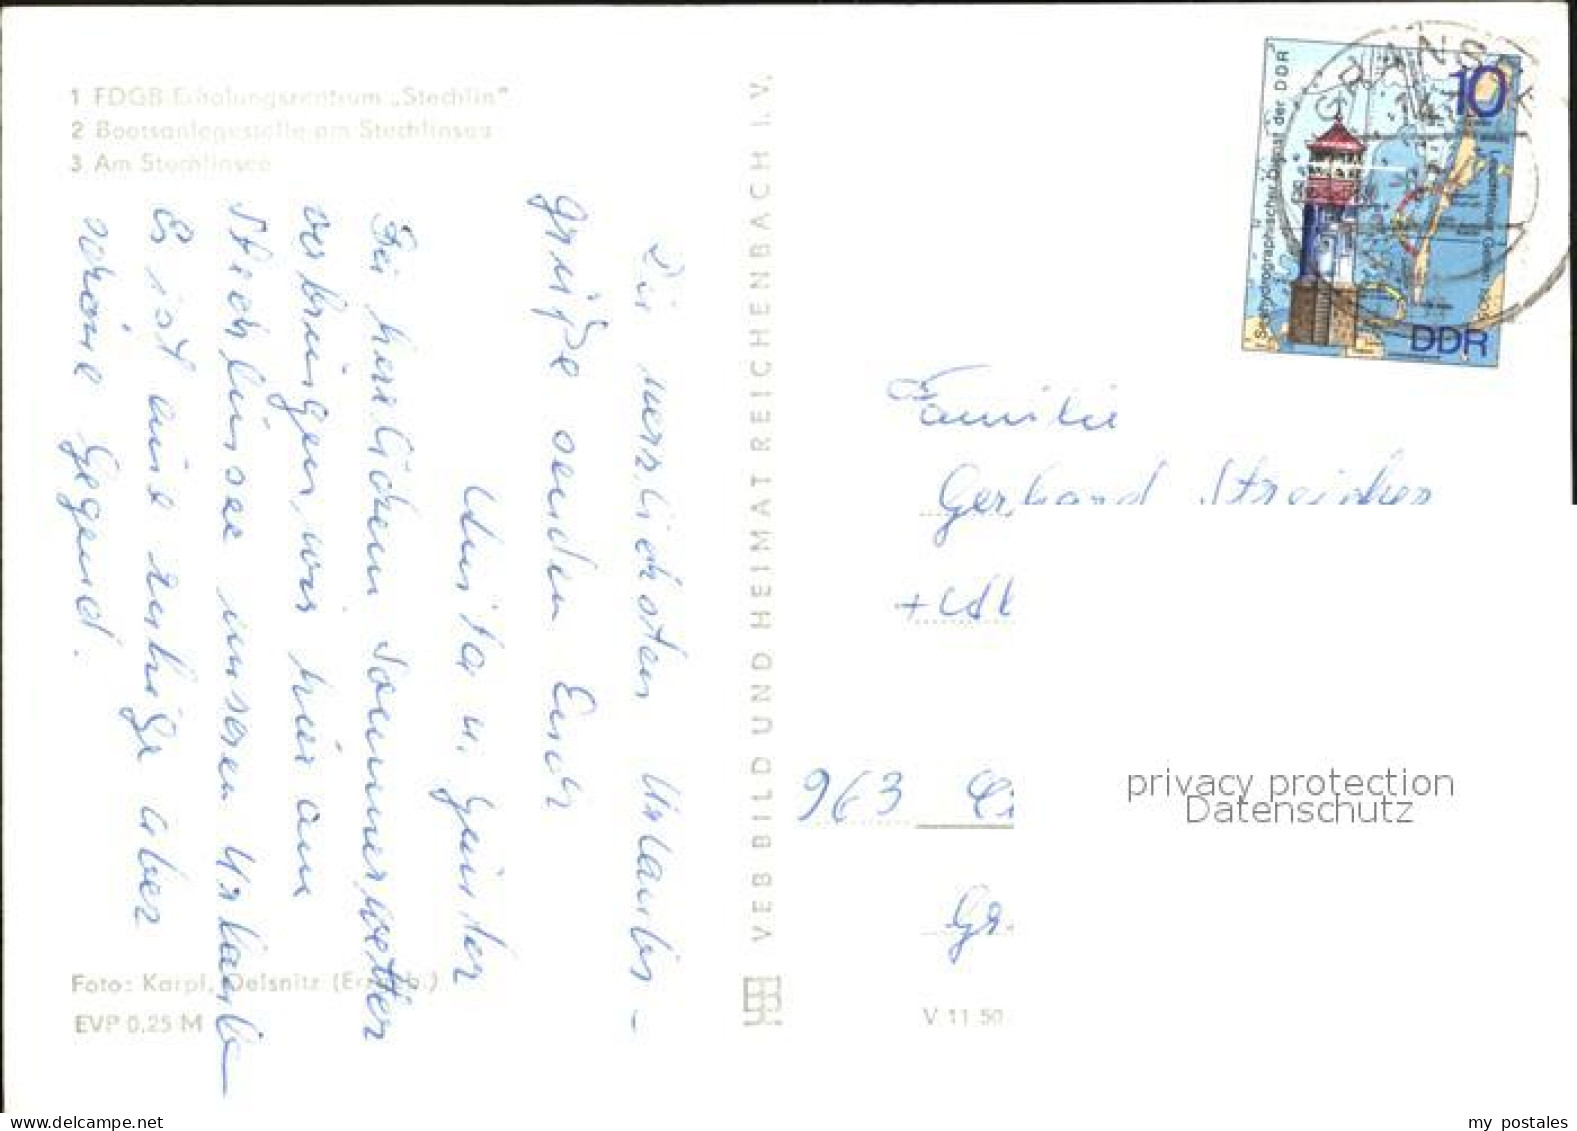 1 FDGB-Erholungszentrum „Stechlin"
2 Bootsanlegestelle am Stechlinsee
3 Am Stechlinsee
Die herzlichsten Urlaubs-
grüße senden Euch
Anita u. Günter
Bei herrlichem Sommerwetter
verbringen wir hier am
Stechlinsee unseren Urlaub
Es ist eine ruhige aber
schöne Gegend.
Foto: Karpf, Oelsnitz (Erzgeb.)
EVP 0,25 M
VEB BILD UND HEIMAT REICHENBACH I. V.
V 11 50
GRANSEE
Seehydrographischer Dienst der DDR
10
DDR
Familie
Gerhard Streicher
963
Gr.
privacy protection
Datenschutz
my postales